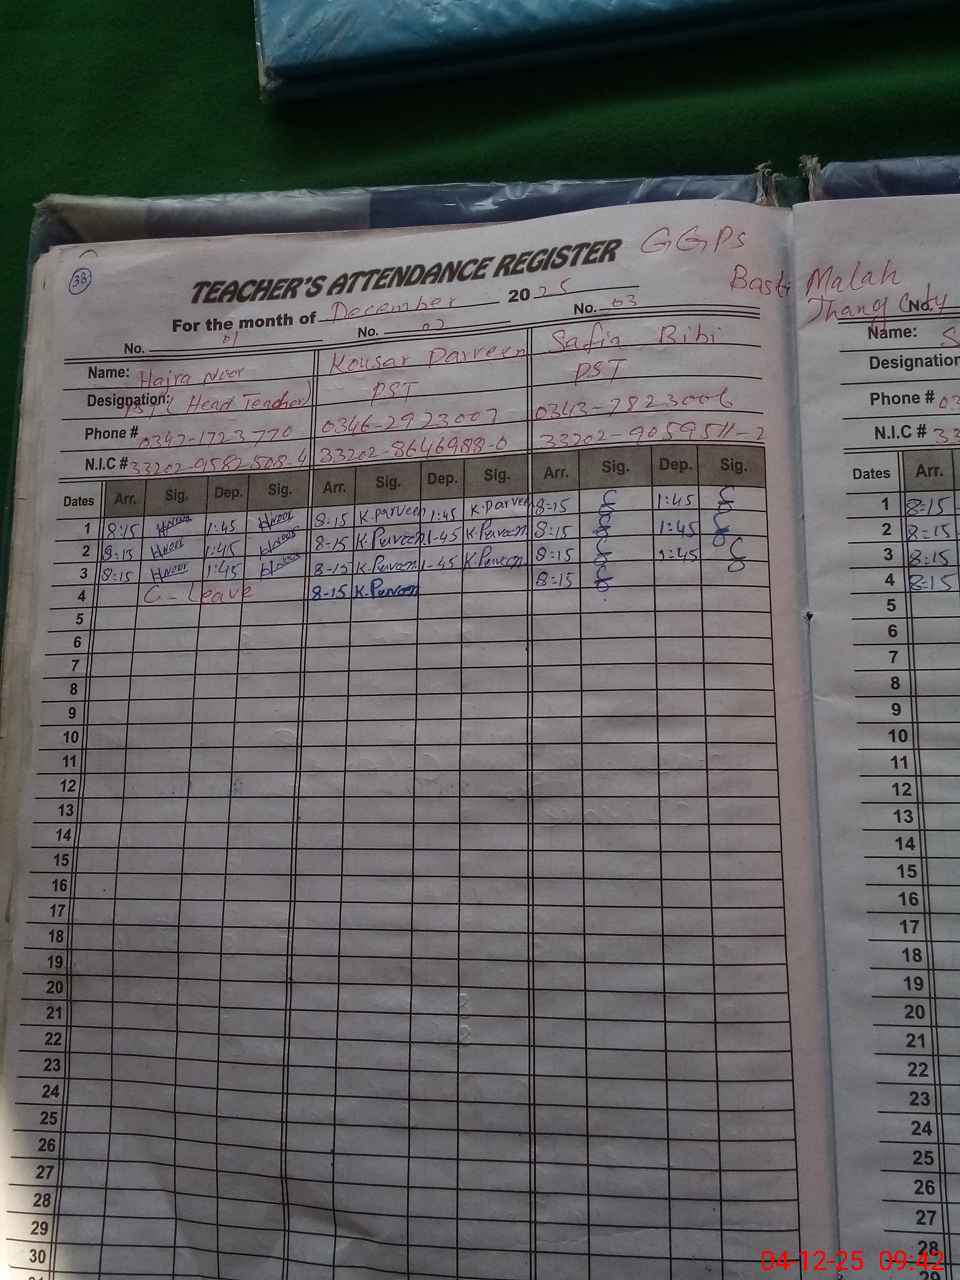 38
TEACHER'S ATTENDANCE REGISTER GGPS
Basti Malah
For the month of December 2025
Jhang City
No. 01 No. 02 No. 03 No.
Name: Hajra Noor Kousar Parveen Safia Bibi Name: S
Designation: PST (Head Teacher) PST PST Designation
Phone # 0347-1723770 0346-2923007 0343-7823006 Phone # 03
N.I.C # 33202-9582508-4 33202-8646988-0 33202-9059511-2 N.I.C # 33
Dates Arr. Sig. Dep. Sig. Arr. Sig. Dep. Sig. Arr. Sig. Dep. Sig. Dates Arr.
1 8:15 HNoor 1:45 HNoor 8-15 K.Parveen 1:45 K.Parveen 8=15 1:45 1 8=15
2 8=15 HNoor 1:45 HNoor 8-15 K.Parveen 1-45 K.Parveen 8=15 1:45 2 8=15
3 8:15 HNoor 1:45 HNoor 8-15 K.Parveen 1-45 K.Parveen 8=15 1:45 3 8=15
4 C-Leave 8-15 K.Parveen 8=15 4 8=15
5 5
6 6
7 7
8 8
9 9
10 10
11 11
12 12
13 13
14 14
15 15
16 16
17 17
18 18
19 19
20 20
21 21
22 22
23 23
24 24
25 25
26 26
27 27
28 28
29
30
04-12-25 09:42